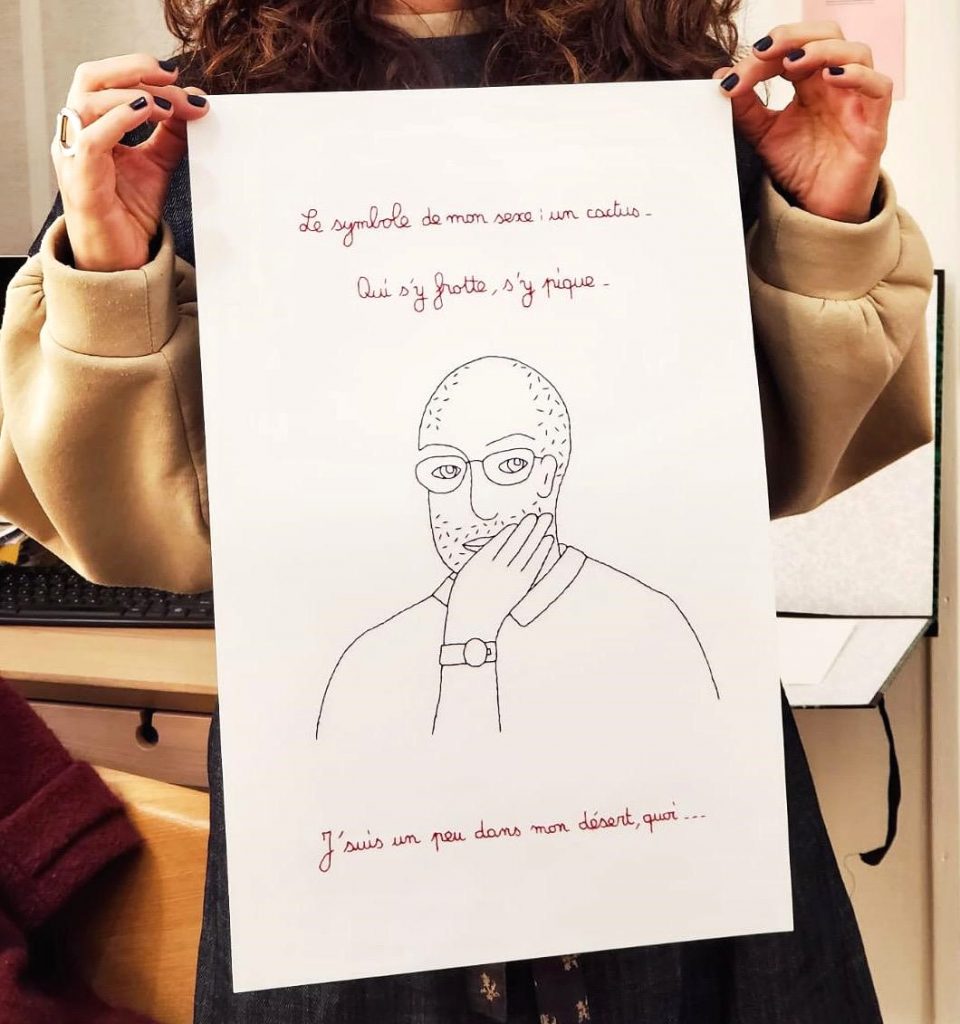 Le symbole de mon sexe : un cactus -
Qui s'y frotte, s'y pique -
J'suis un peu dans mon désert, quoi ---